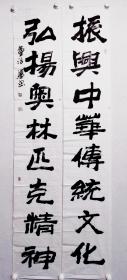 振興中華傳統文化
弘揚奧林匹克精神